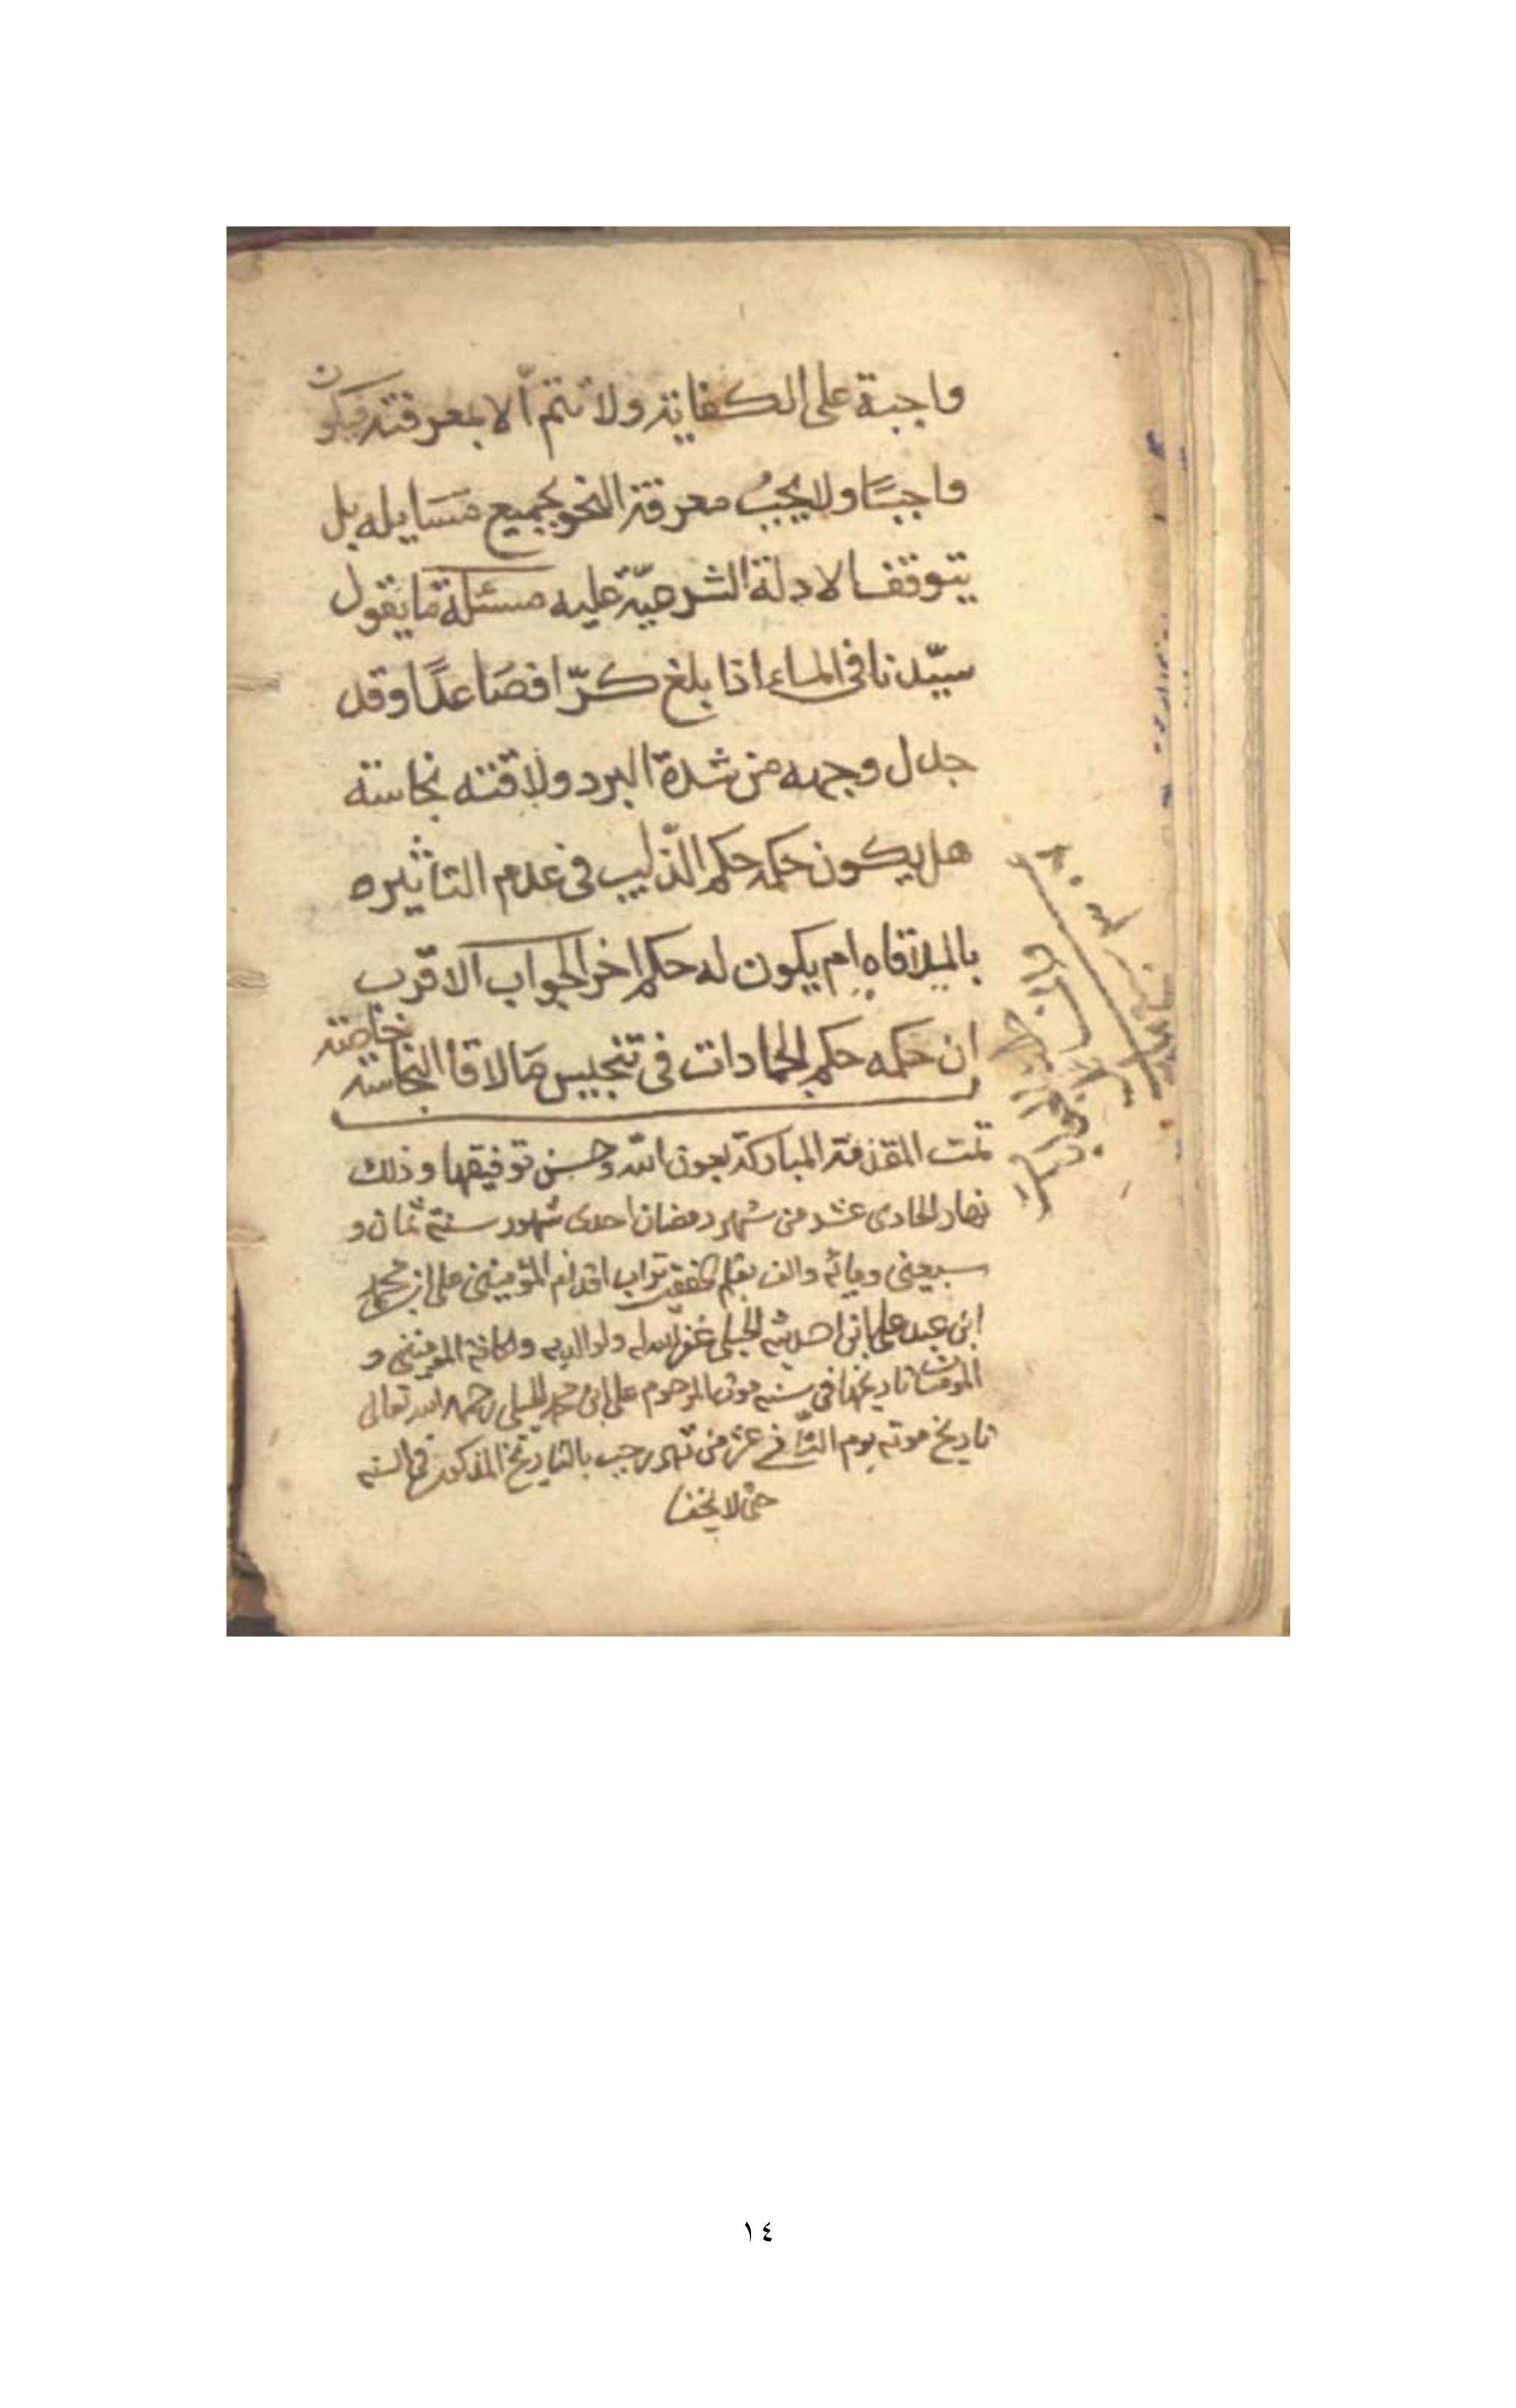 واجبة على الكفاية ولا تتم الا بمعرفته فيكون
واجبًا ولا يجبُ معرفة النحو بجميع مسايله بل
يتوقف الادلة الشرعيّة عليه مسئلة ما يقول
سيّدنا في الماء اذا بلغ كرّا فصَاعدًا وقد
جلل وجهه من شدة البرد ولاقته نجاسة
هل يكون حكمه حكم الذليب في عدم التاثيره
بالملاقاه ام يكون له حكم اخر الجواب الاقرب
ان حكمه حكم الجمادات في تنجيس مَا لاقا النجاسة
خاصة
تمت المقدمة المباركة بعون الله وحسن توفيقها وذلك
نهار الحادى عشر من شهر رمضان احدى شهور سنة ثمان و
سبعين ومائه والف بقلم تراب اقدام المؤمنين على ابن محمد
ابن عبد على ابن الجبلى غفر الله له ولوالديه ولكافة المومنين و
المومنات تاريخها في سنه موت المرحوم على ابن محمد الجبلى رحمه الله تعالى
تاريخ موته يوم من شهر رجب بالتاريخ المذكور في السنه
حتى لا يخفا
١٤